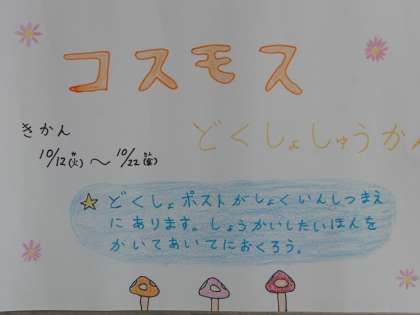 コスモス
どくしょしゅうかん
きかん
10/12(火)～10/22(金)
☆どくしょポストがしょくいんしつまえ
にあります。しょうかいしたいほんを
かいてあいてにおくろう。